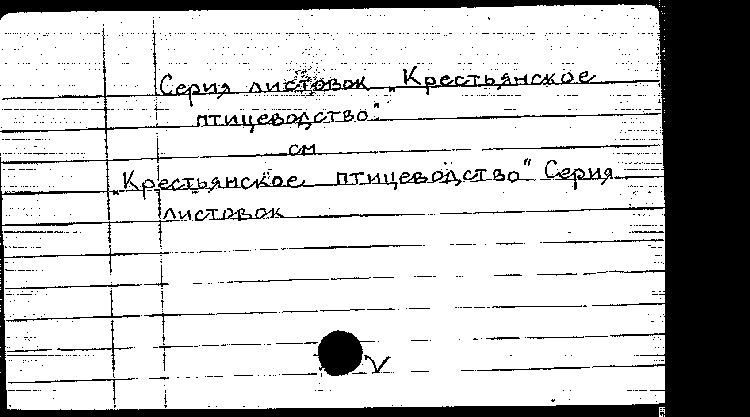 Серия листовок „Крестьянское
птицеводство"
см
„Крестьянское птицеводство" Серия
листовок